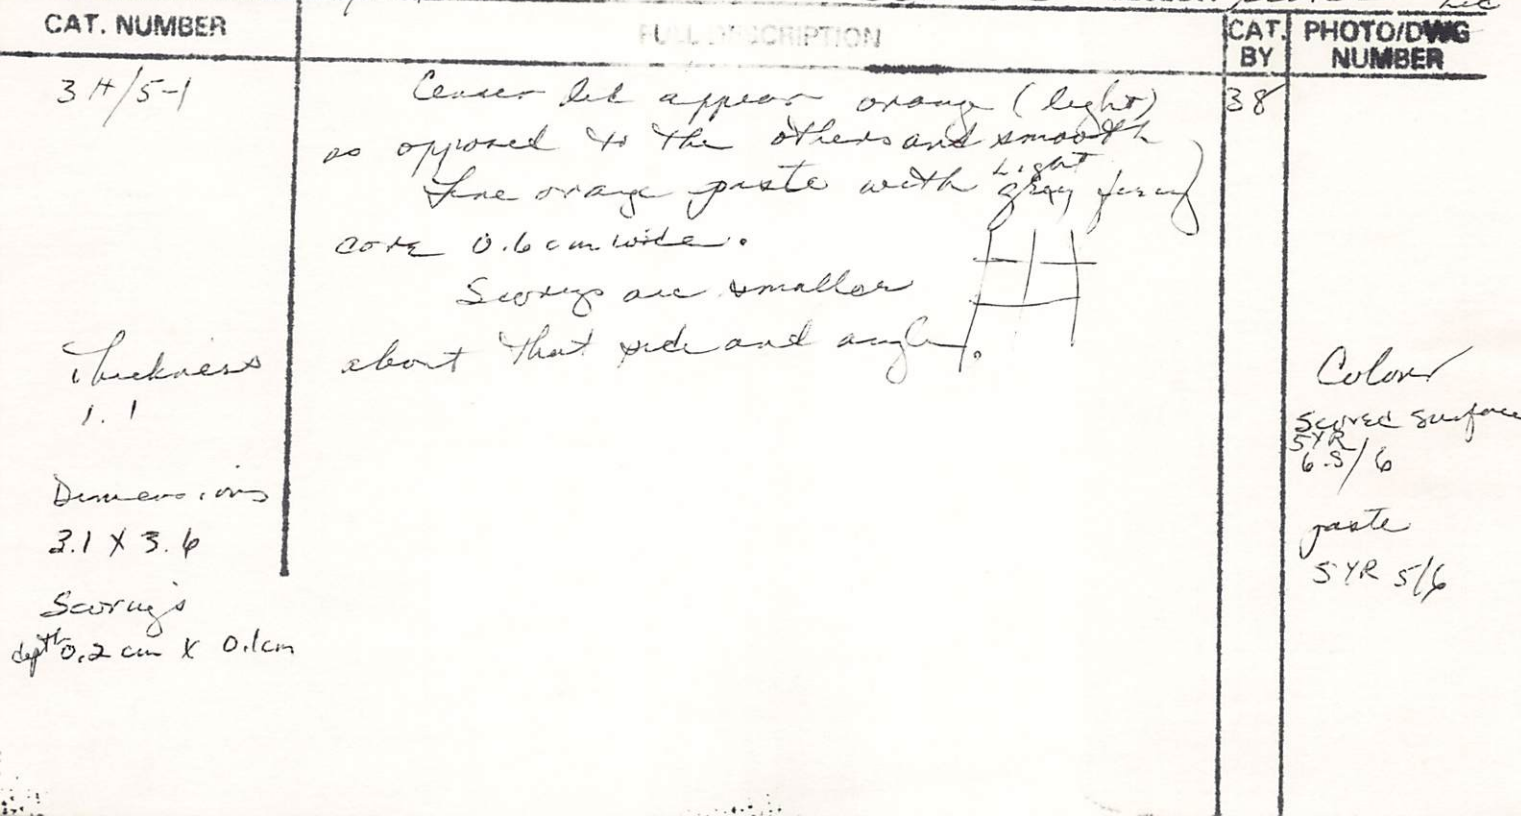 CAT. NUMBER FULL DESCRIPTION CAT. BY PHOTO/DWG NUMBER
3H/5-1 Censer lid appear orange (light) 38
as opposed to the others and smooth
Fine orange paste with Light gray firing
core 0.6 cm wide.
Scorings are smaller
about that side and angle.
Thickness
1.1
Dimensions
3.1 X 3.6
Scorings
depth 0.2 cm X 0.1cm
Colour
Scored Surface
5YR
6.5/6
paste
5YR 5/6